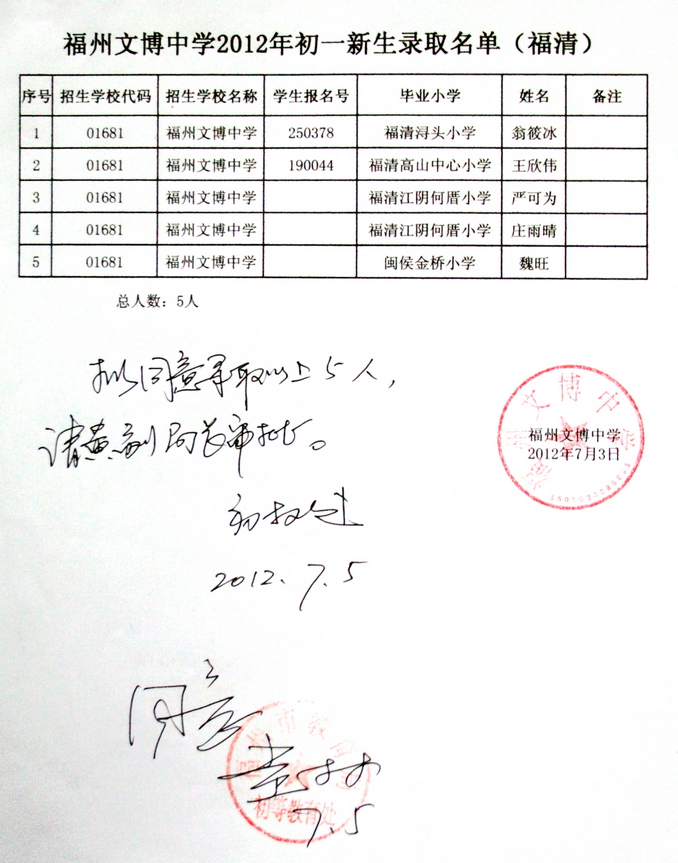 福州文博中学2012年初一新生录取名单（福清）
序号 招生学校代码 招生学校名称 学生报名号 毕业小学 姓名 备注
1 01681 福州文博中学 250378 福清浔头小学 翁筱冰
2 01681 福州文博中学 190044 福清高山中心小学 王欣伟
3 01681 福州文博中学 福清江阴何厝小学 严可为
4 01681 福州文博中学 福清江阴何厝小学 庄雨晴
5 01681 福州文博中学 闽侯金桥小学 魏旺
总人数：5人
拟同意录取以上5人，
请黄副局长审批。
福州文博中学
福州文博中学
2012年7月3日
2012.7.5
同意
福州市教育局
初等教育处
7.5